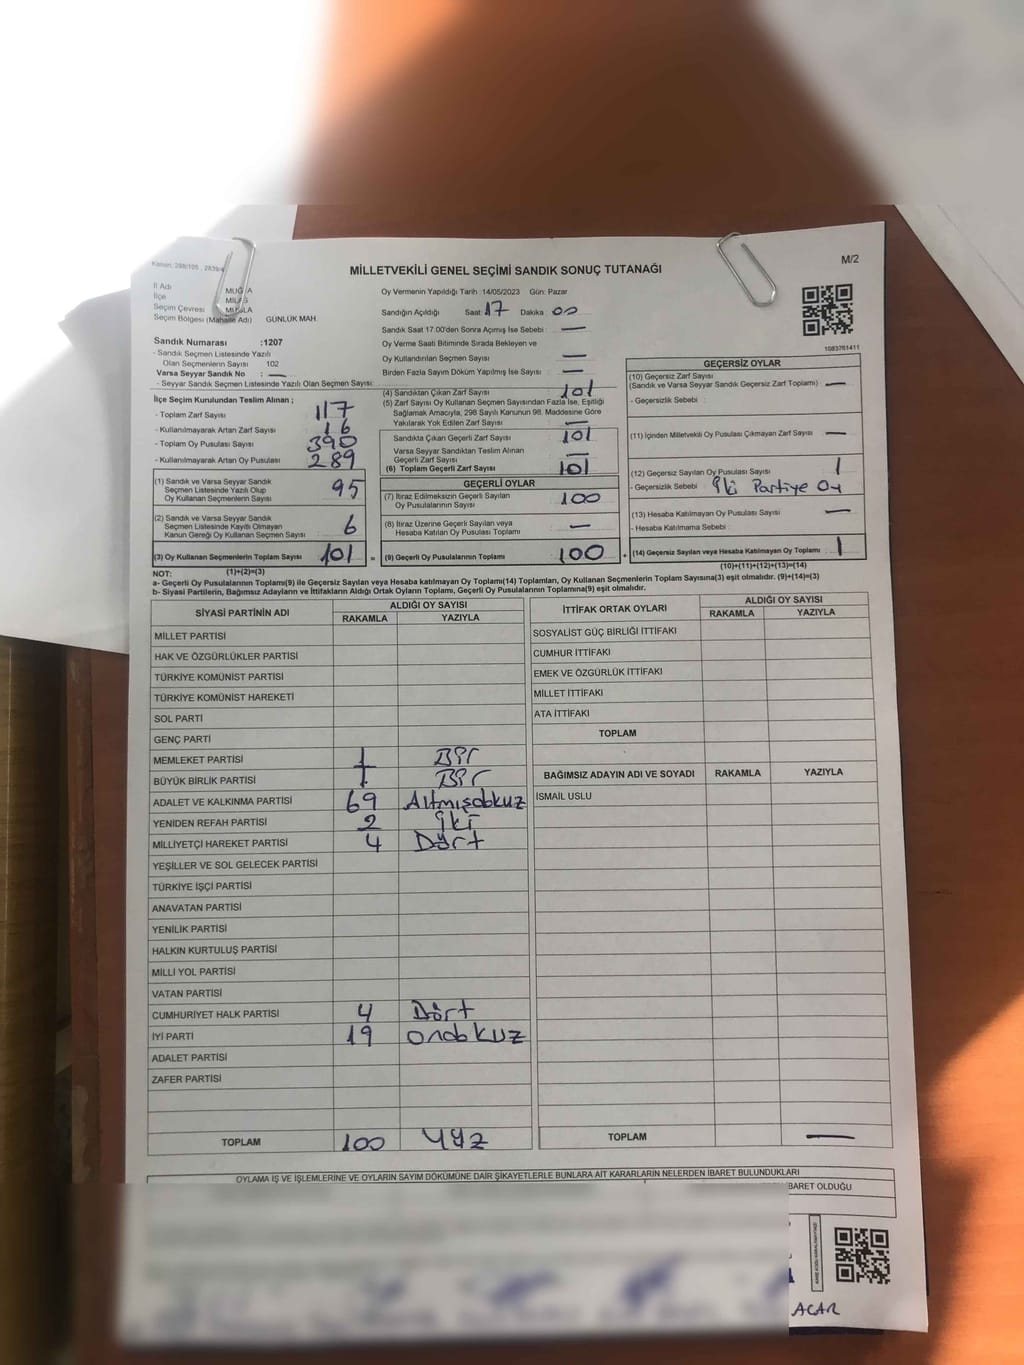 Kanun; 298/105 , 2839/4
MİLLETVEKİLİ GENEL SEÇİMİ SANDIK SONUÇ TUTANAĞI
M/2
İl Adı MUĞLA
İlçe MİLAS
Seçim Çevresi MUĞLA
Seçim Bölgesi (Mahalle Adı) GÜNLÜK MAH.
Sandık Numarası :1207
- Sandık Seçmen Listesinde Yazılı
Olan Seçmenlerin Sayısı 102
Varsa Seyyar Sandık No : —
- Seyyar Sandık Seçmen Listesinde Yazılı Olan Seçmen Sayısı:
İlçe Seçim Kurulundan Teslim Alınan ;
- Toplam Zarf Sayısı 117
- Kullanılmayarak Artan Zarf Sayısı 16
- Toplam Oy Pusulası Sayısı 390
- Kullanılmayarak Artan Oy Pusulası 289
(1) Sandık ve Varsa Seyyar Sandık
Seçmen Listesinde Yazılı Olup
Oy Kullanan Seçmenlerin Sayısı 95
(2) Sandık ve Varsa Seyyar Sandık
Seçmen Listesinde Kayıtlı Olmayan
Kanun Gereği Oy Kullanan Seçmen Sayısı 6
(3) Oy Kullanan Seçmenlerin Toplam Sayısı 101 =
Oy Vermenin Yapıldığı Tarih :14/05/2023 Gün: Pazar
Sandığın Açıldığı Saat 17 Dakika 00
Sandık Saat 17:00'den Sonra Açmış İse Sebebi : —
Oy Verme Saati Bitiminde Sırada Bekleyen ve
Oy Kullandırılan Seçmen Sayısı —
Birden Fazla Sayım Döküm Yapılmış İse Sayısı : —
(4) Sandıktan Çıkan Zarf Sayısı 101
(5) Zarf Sayısı Oy Kullanan Seçmen Sayısından Fazla İse, Eşitliği
Sağlamak Amacıyla, 298 Sayılı Kanunun 98. Maddesine Göre
Yakılarak Yok Edilen Zarf Sayısı —
Sandıkta Çıkan Geçerli Zarf Sayısı 101
Varsa Seyyar Sandıktan Teslim Alınan
Geçerli Zarf Sayısı —
(6) Toplam Geçerli Zarf Sayısı 101
GEÇERLİ OYLAR
(7) İtiraz Edilmeksizin Geçerli Sayılan
Oy Pusulalarının Sayısı 100
(8) İtiraz Üzerine Geçerli Sayılan veya
Hesaba Katılan Oy Pusulası Toplamı —
(9) Geçerli Oy Pusulalarının Toplamı 100 +
1083761411
GEÇERSİZ OYLAR
(10) Geçersiz Zarf Sayısı
(Sandık ve Varsa Seyyar Sandık Geçersiz Zarf Toplamı) —
- Geçersizlik Sebebi :
(11) İçinden Milletvekili Oy Pusulası Çıkmayan Zarf Sayısı —
(12) Geçersiz Sayılan Oy Pusulası Sayısı 1
- Geçersizlik Sebebi İki Partiye Oy
(13) Hesaba Katılmayan Oy Pusulası Sayısı —
- Hesaba Katılmama Sebebi :
(14) Geçersiz Sayılan veya Hesaba Katılmayan Oy Toplamı 1
(10)+(11)+(12)+(13)=(14)
NOT: (1)+(2)=(3)
a- Geçerli Oy Pusulalarının Toplamı(9) ile Geçersiz Sayılan veya Hesaba katılmayan Oy Toplamı(14) Toplamları, Oy Kullanan Seçmenlerin Toplam Sayısına(3) eşit olmalıdır. (9)+(14)=(3)
b- Siyasi Partilerin, Bağımsız Adayların ve İttifakların Aldığı Ortak Oyların Toplamı, Geçerli Oy Pusulalarının Toplamına(9) eşit olmalıdır.
SİYASİ PARTİNİN ADI ALDIĞI OY SAYISI
RAKAMLA YAZIYLA
MİLLET PARTİSİ
HAK VE ÖZGÜRLÜKLER PARTİSİ
TÜRKİYE KOMÜNİST PARTİSİ
TÜRKİYE KOMÜNİST HAREKETİ
SOL PARTİ
GENÇ PARTİ
MEMLEKET PARTİSİ 1 Bir
BÜYÜK BİRLİK PARTİSİ 1 Bir
ADALET VE KALKINMA PARTİSİ 69 Altmışdokuz
YENİDEN REFAH PARTİSİ 2 İki
MİLLİYETÇİ HAREKET PARTİSİ 4 Dört
YEŞİLLER VE SOL GELECEK PARTİSİ
TÜRKİYE İŞÇİ PARTİSİ
ANAVATAN PARTİSİ
YENİLİK PARTİSİ
HALKIN KURTULUŞ PARTİSİ
MİLLİ YOL PARTİSİ
VATAN PARTİSİ
CUMHURİYET HALK PARTİSİ 4 Dört
İYİ PARTİ 19 ondokuz
ADALET PARTİSİ
ZAFER PARTİSİ
TOPLAM 100 Yüz
İTTİFAK ORTAK OYLARI ALDIĞI OY SAYISI
RAKAMLA YAZIYLA
SOSYALİST GÜÇ BİRLİĞİ İTTİFAKI
CUMHUR İTTİFAKI
EMEK VE ÖZGÜRLÜK İTTİFAKI
MİLLET İTTİFAKI
ATA İTTİFAKI
TOPLAM
BAĞIMSIZ ADAYIN ADI VE SOYADI RAKAMLA YAZIYLA
İSMAİL USLU
TOPLAM —
OYLAMA İŞ VE İŞLEMLERİNE VE OYLARIN SAYIM DÖKÜMÜNE DAİR ŞİKAYETLERLE BUNLARA AİT KARARLARIN NELERDEN İBARET BULUNDUKLARI
İBARET OLDUĞU
ACAR